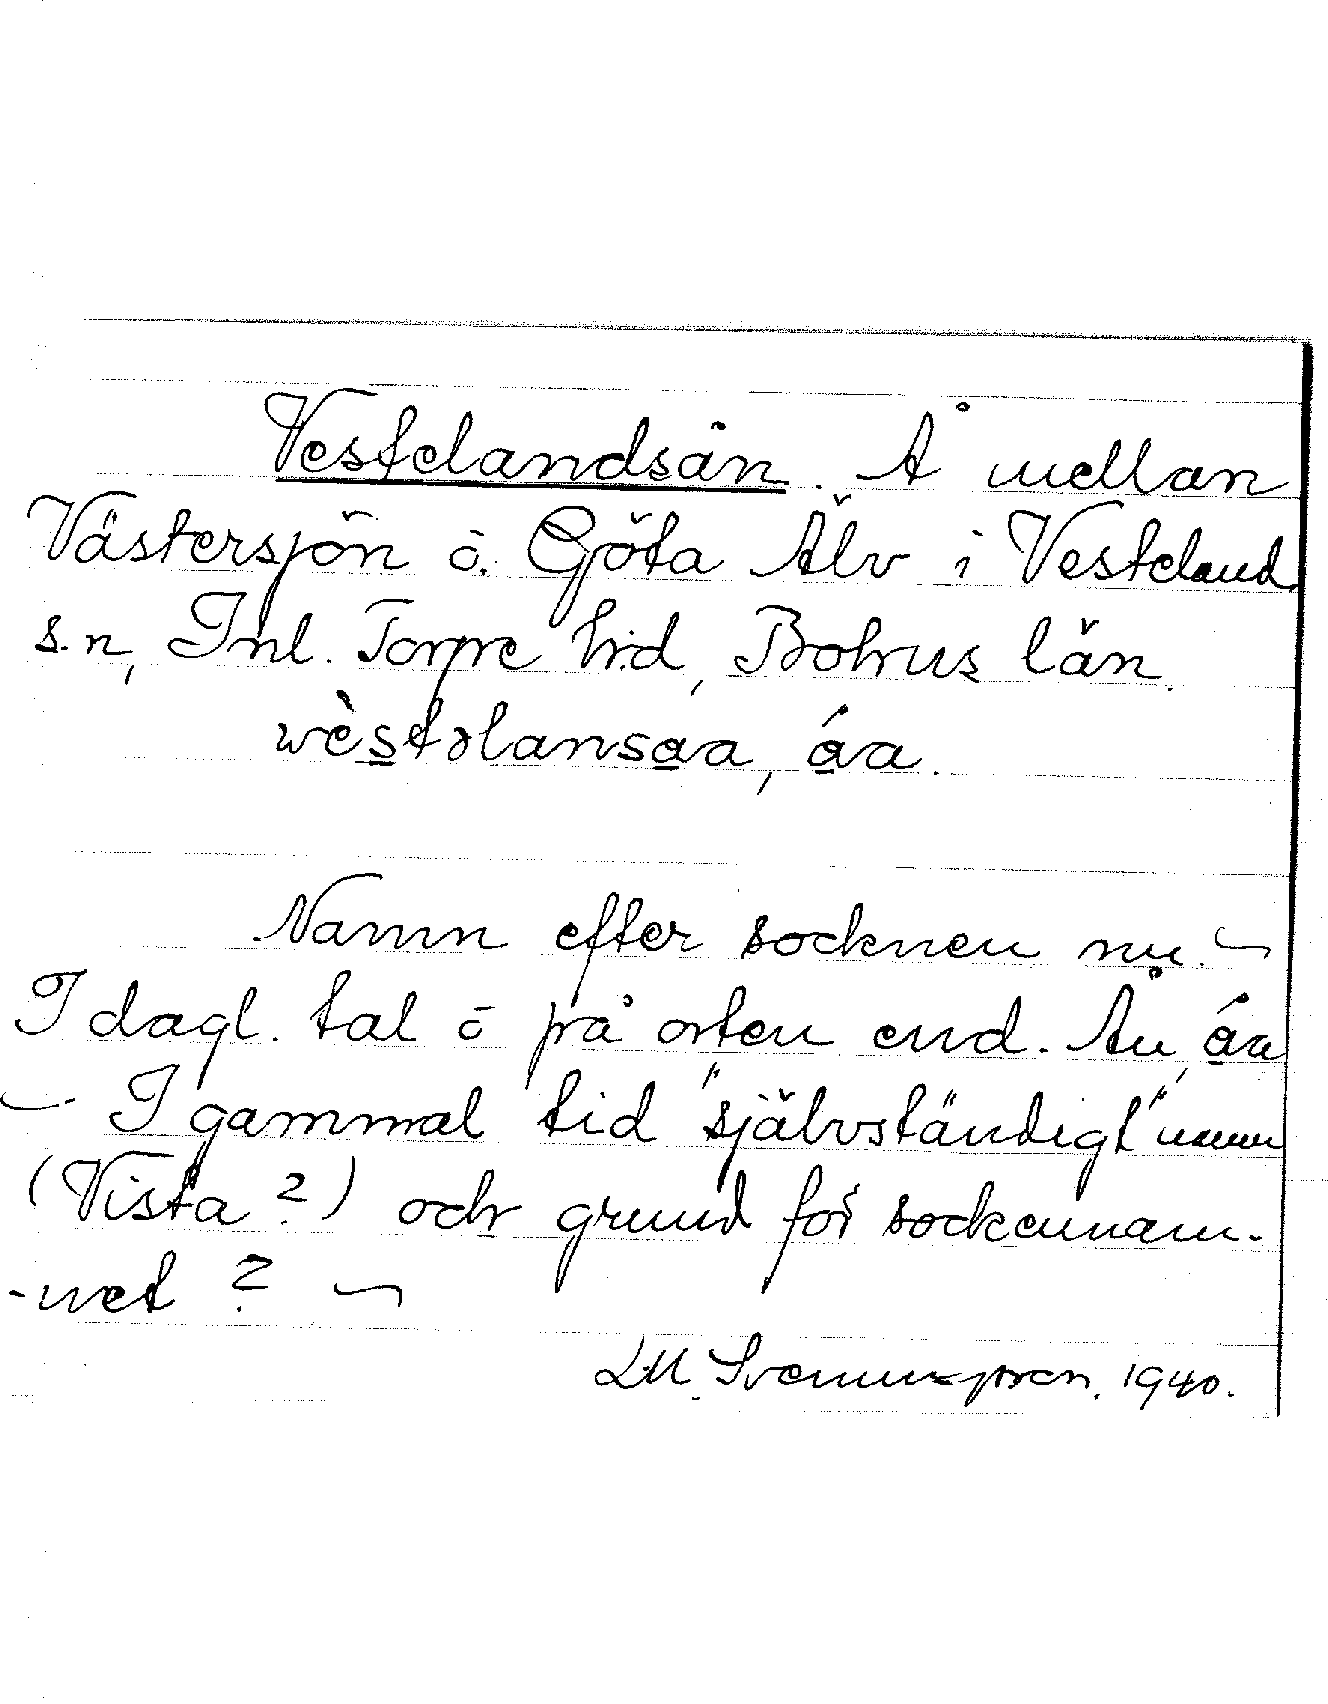 Vestelandsån. Å mellan
Västersjön ō. Göta Älv i Vesteland
s.n, Inl. Torpe h:d, Bohus län.
wèstəlansaa, áa.
Namn efter socknen nu. ~
I dagl. tal ō på orten end. Ån, áa
~ I gammal tid "självständigt" namn
(Vista?) och grund för sockennam-
-net? ~
LM. 1940.